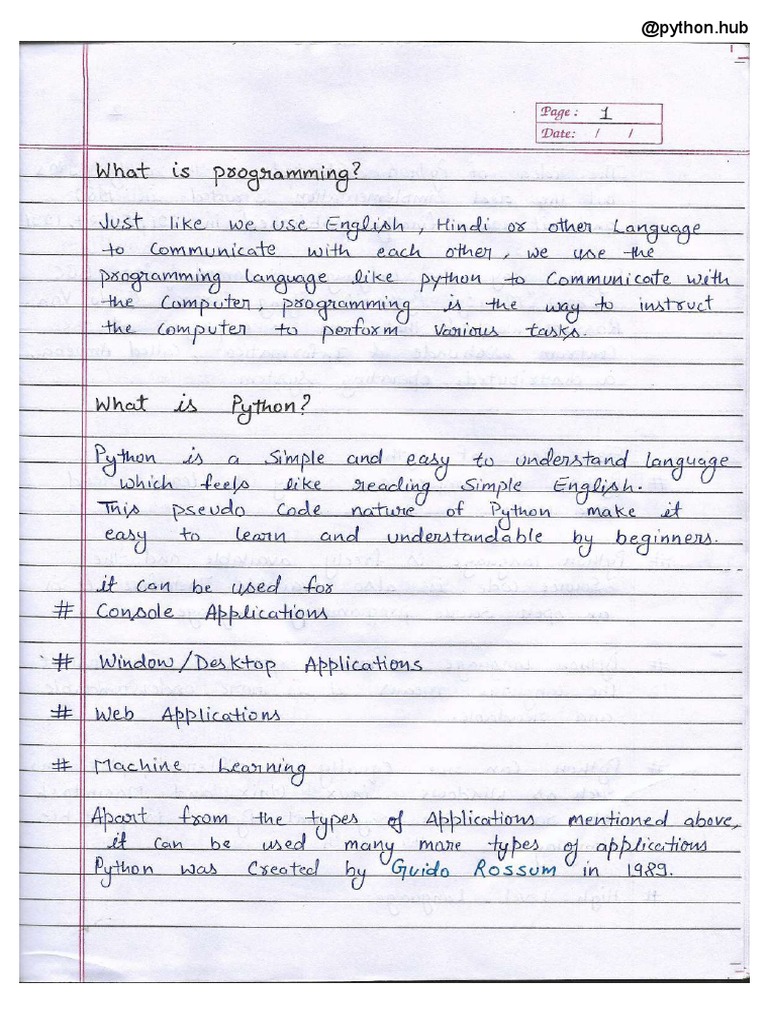 @python.hub
Page: 1
Date: / /
What is programming?
Just like we use English, Hindi or other Language
to communicate with each other, we use the
programming language like python to communicate with
the computer, programming is the way to instruct
the computer to perform various tasks.
What is Python?
Python is a simple and easy to understand language
which feels like reading simple English.
This pseudo code nature of Python make it
easy to learn and understandable by beginners.
it can be used for
# Console Applications
# Window/Desktop Applications
# Web Applications
# Machine Learning
Apart from the types of Applications mentioned above,
it can be used many more types of applications
Python was created by Guido Rossum in 1989.